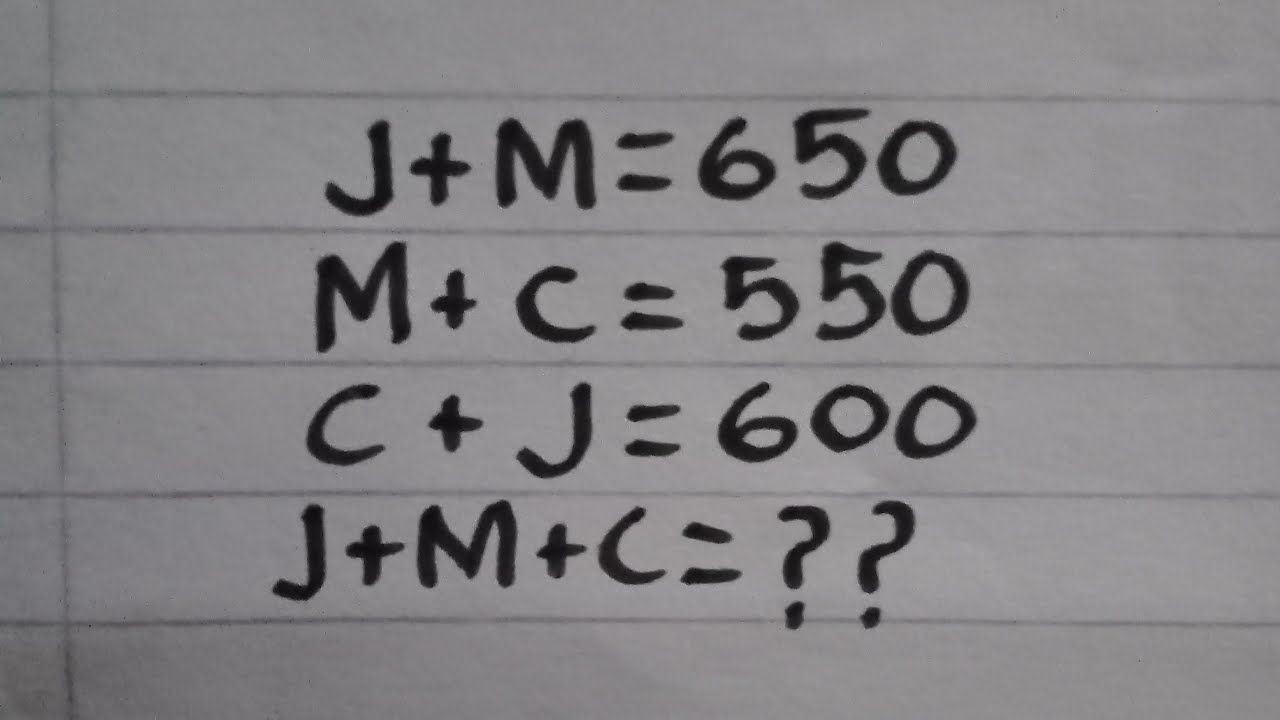 J+M=650
M+C=550
C+J=600
J+M+C=??